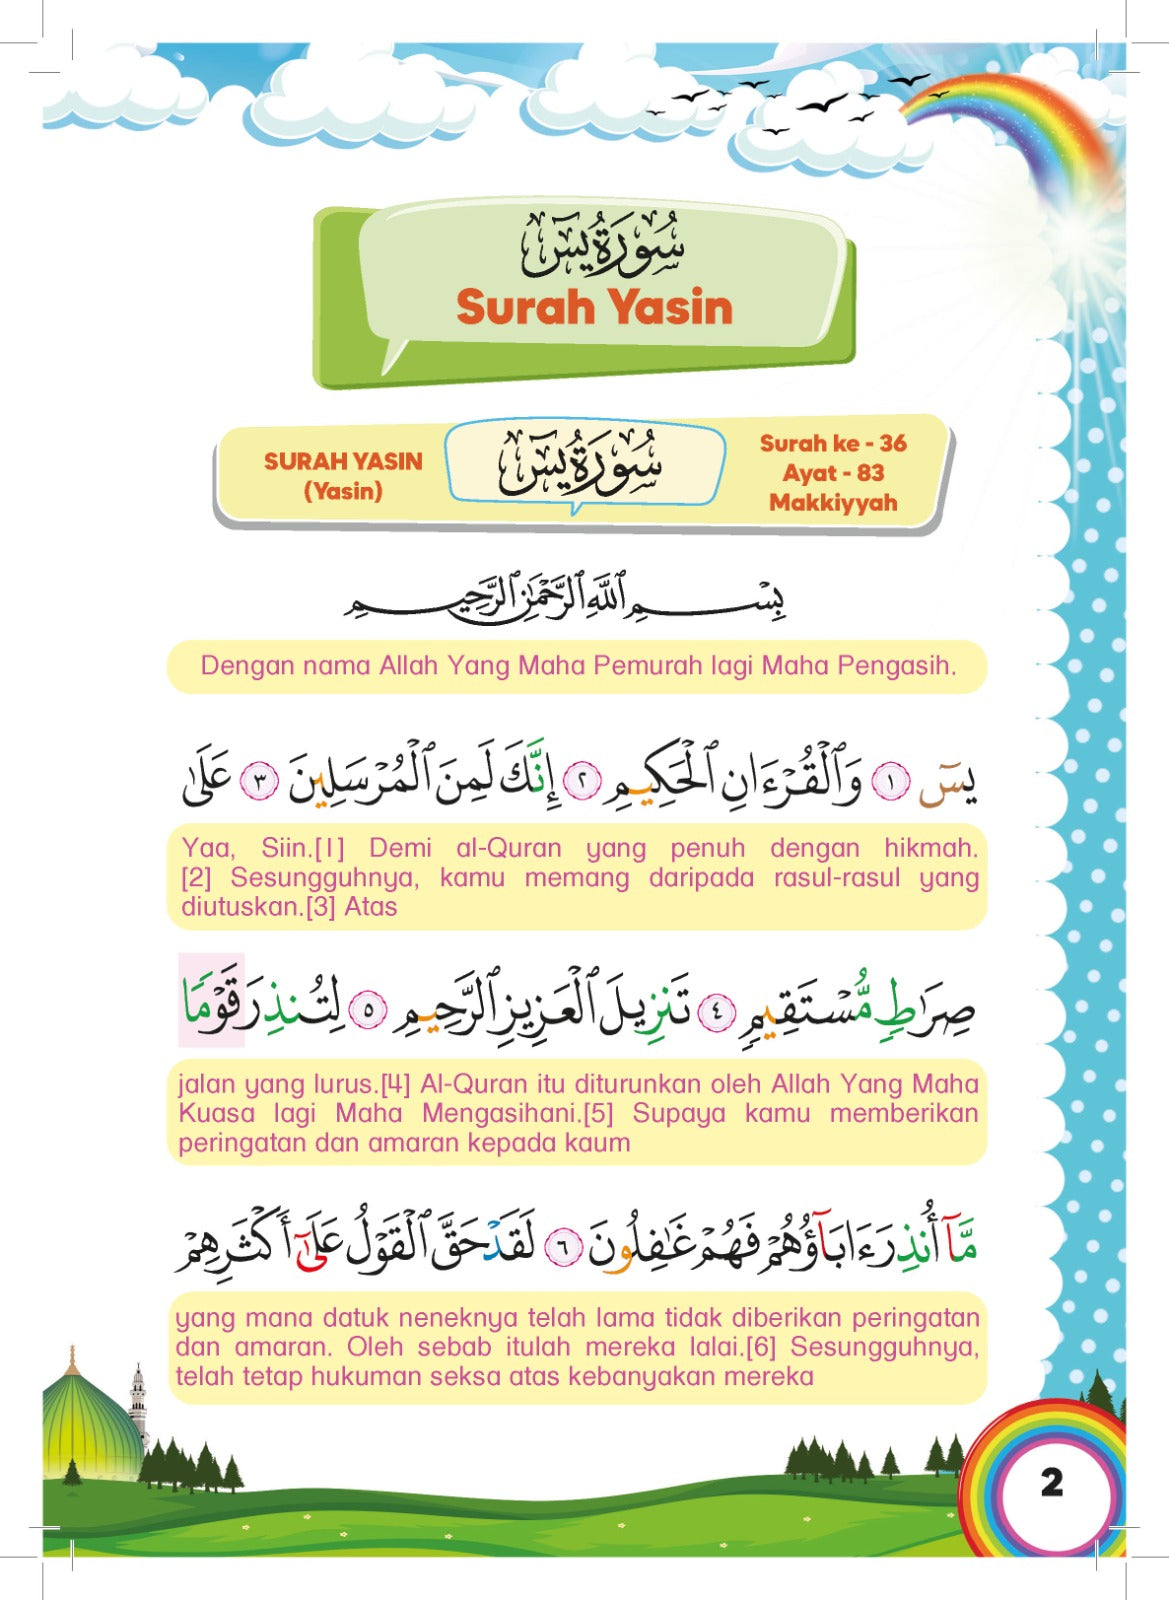 سُورَةُ يسٓ
Surah Yasin
SURAH YASIN
(Yasin)
سُورَةُ يسٓ
Surah ke - 36
Ayat - 83
Makkiyyah
بِسْمِ ٱللَّهِ ٱلرَّحْمَٰنِ ٱلرَّحِيمِ
Dengan nama Allah Yang Maha Pemurah lagi Maha Pengasih.
يسٓ ١ وَٱلْقُرْءَانِ ٱلْحَكِيمِ ٢ إِنَّكَ لَمِنَ ٱلْمُرْسَلِينَ ٣ عَلَىٰ
Yaa, Siin.[1] Demi al-Quran yang penuh dengan hikmah.
[2] Sesungguhnya, kamu memang daripada rasul-rasul yang
diutuskan.[3] Atas
صِرَٰطٍ مُّسْتَقِيمٍ ٤ تَنزِيلَ ٱلْعَزِيزِ ٱلرَّحِيمِ ٥ لِتُنذِرَ قَوْمًا
jalan yang lurus.[4] Al-Quran itu diturunkan oleh Allah Yang Maha
Kuasa lagi Maha Mengasihani.[5] Supaya kamu memberikan
peringatan dan amaran kepada kaum
مَّآ أُنذِرَ ءَابَآؤُهُمْ فَهُمْ غَٰفِلُونَ ٦ لَقَدْ حَقَّ ٱلْقَوْلُ عَلَىٰٓ أَكْثَرِهِمْ
yang mana datuk neneknya telah lama tidak diberikan peringatan
dan amaran. Oleh sebab itulah mereka lalai.[6] Sesungguhnya,
telah tetap hukuman seksa atas kebanyakan mereka
2